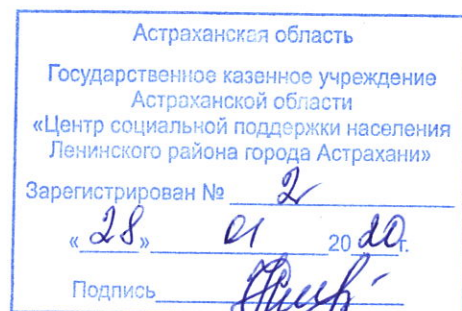 Астраханская область
Государственное казенное учреждение
Астраханской области
«Центр социальной поддержки населения
Ленинского района города Астрахани»
Зарегистрирован № 2
«28» 01 2020г.
Подпись